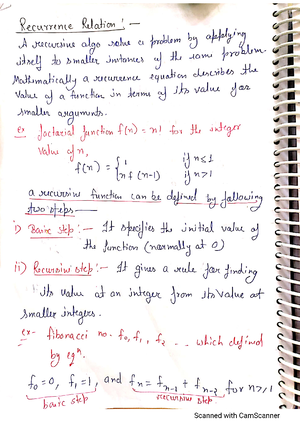 Recurrence Relation :-
A recursive algo solve a problem by applying
itself to smaller instances of the same problem.
Mathematically a recurrence equation describes the
value of a function in terms of its value for
smaller arguments.
ex factorial function f(n) = n! for the integer
value of n,
f(n) = { 1 if n ≤ 1
n f (n-1) if n > 1
a recursive function can be defined by following
two steps -
i) Basic step :- It specifies the initial value of
the function (normally at 0)
ii) Recursive step :- It gives a rule for finding
its value at an integer from its value at
smaller integers.
ex- fibonacci no. f0, f1, f2 ... which defined
by eqn.
f0 = 0, f1 = 1, and fn = fn-1 + fn-2 for n > 1
basic step recursive step
Scanned with CamScanner